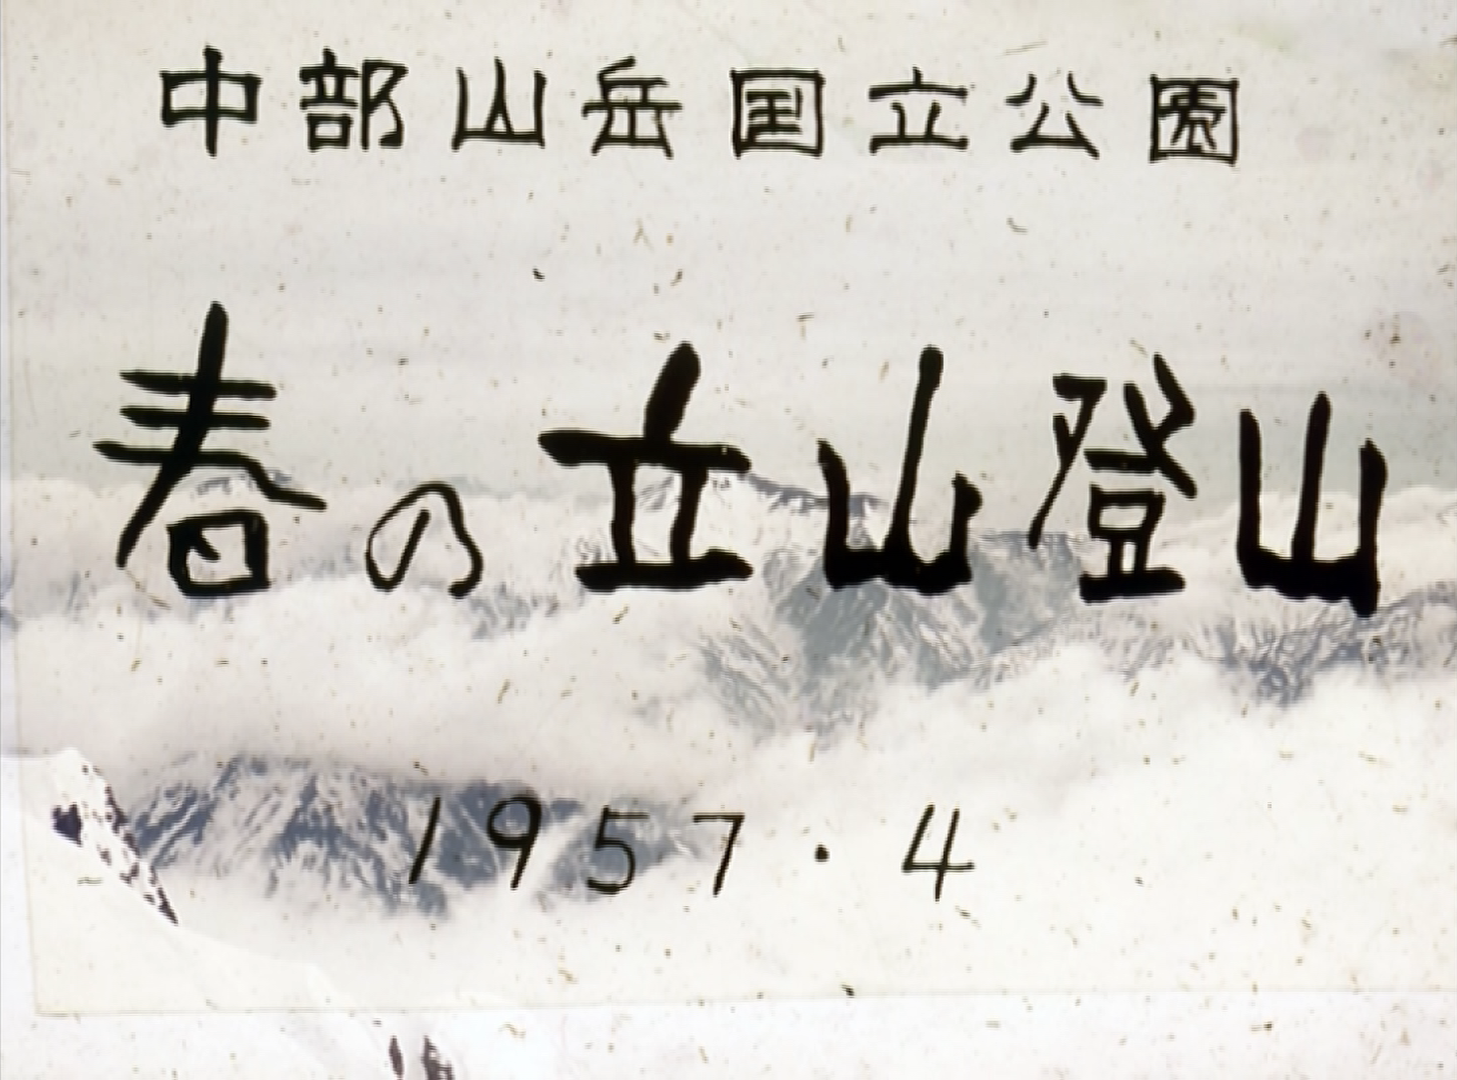 中部山岳国立公園
春の立山登山
1957・4